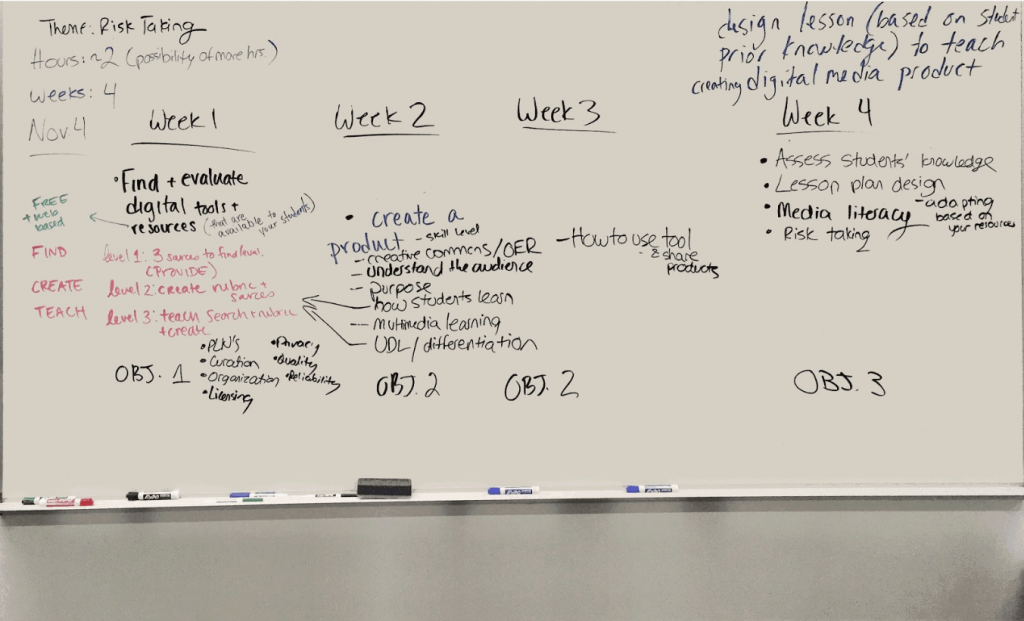 Theme: Risk Taking
Hours: ~2 (possibility of more hrs.)
Weeks: 4
Nov 4
design lesson (based on student
prior knowledge) to teach
creating digital media product
Week 1
• Find + evaluate
digital tools +
resources (that are
available to
your students)
FREE
+ web
based
FIND
level 1: 3 sources to find level.
(PROVIDE)
CREATE
level 2: create rubric +
sources
TEACH
level 3: teach search + rubric
+ create
OBJ. 1
• PLN'S
• Curation
• Organization
• Licensing
• Privacy
• Quality
• Reliability
Week 2
• create a
product - skill level
- creative commons/OER
- understand the audience
- purpose
- how students learn
- multimedia learning
- UDL/differentiation
OBJ. 2
Week 3
- How to use tool
- & share
products
OBJ. 2
Week 4
• Assess students' knowledge
• Lesson plan design
- adapting
based on
your resources
• Media literacy
• Risk taking
OBJ. 3